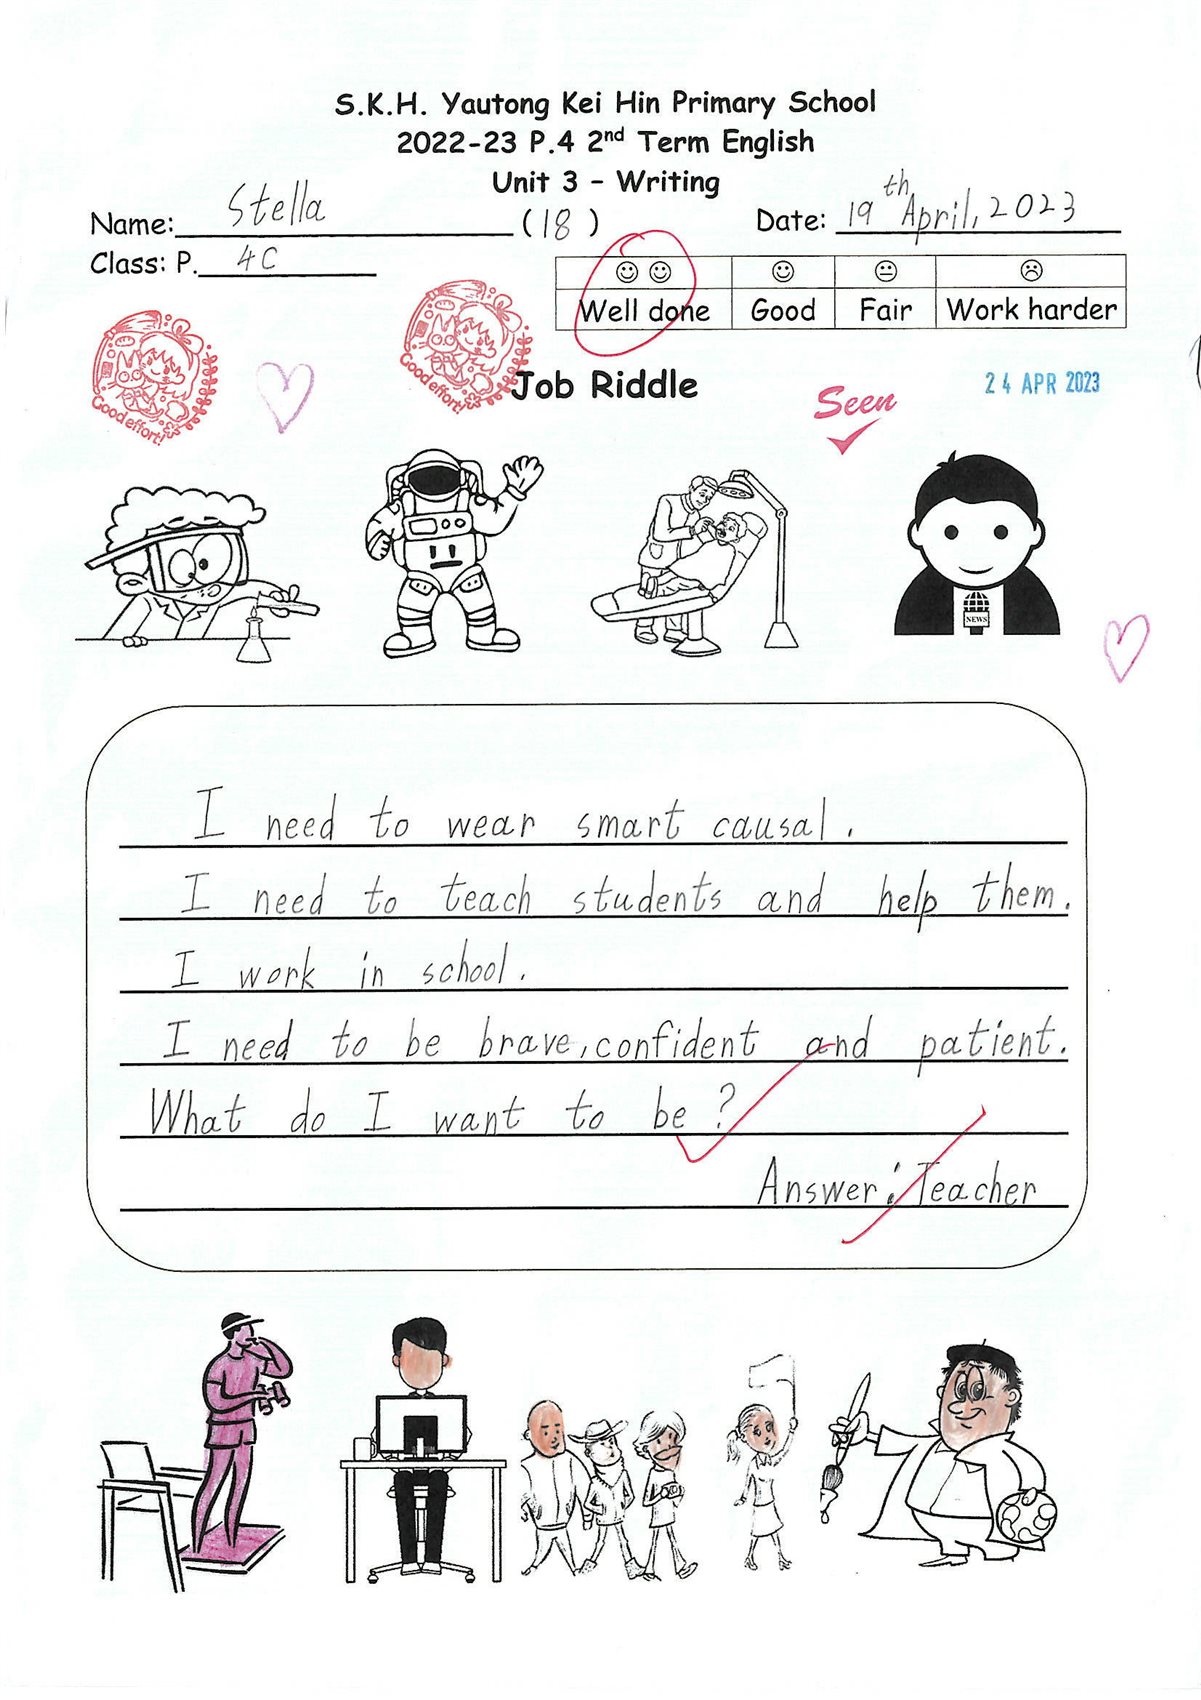 S.K.H. Yautong Kei Hin Primary School
2022-23 P.4 2nd Term English
Unit 3 – Writing
Name: Stella (18) Date: 19th April, 2023
Class: P. 4C
Well done Good Fair Work harder
Good effort!
Good effort!
Job Riddle
Seen
24 APR 2023
NEWS
I need to wear smart causal.
I need to teach students and help them.
I work in school.
I need to be brave, confident and patient.
What do I want to be?
Answer: Teacher